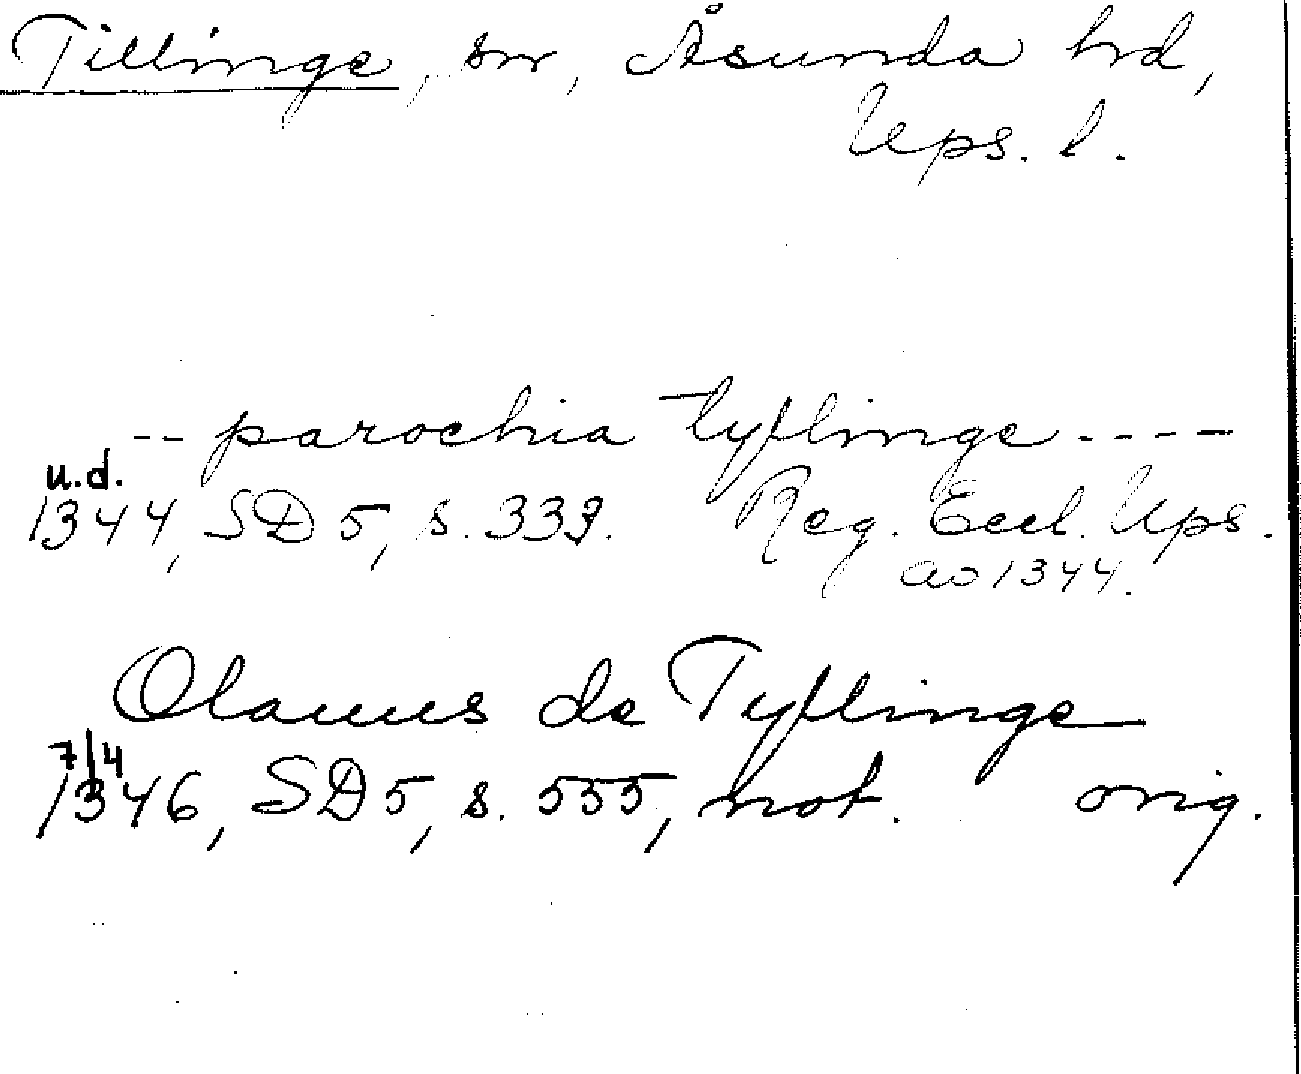 Tillinge, sn, Åsunda hd,
Ups. l.
-- parochia tyflinge ----
u.d.
1344, SD 5, s. 339. Reg. Eccl. Ups.
ao 1344.
Olauus de Tyflinge
7/4
1346, SD 5, s. 555, not. orig.